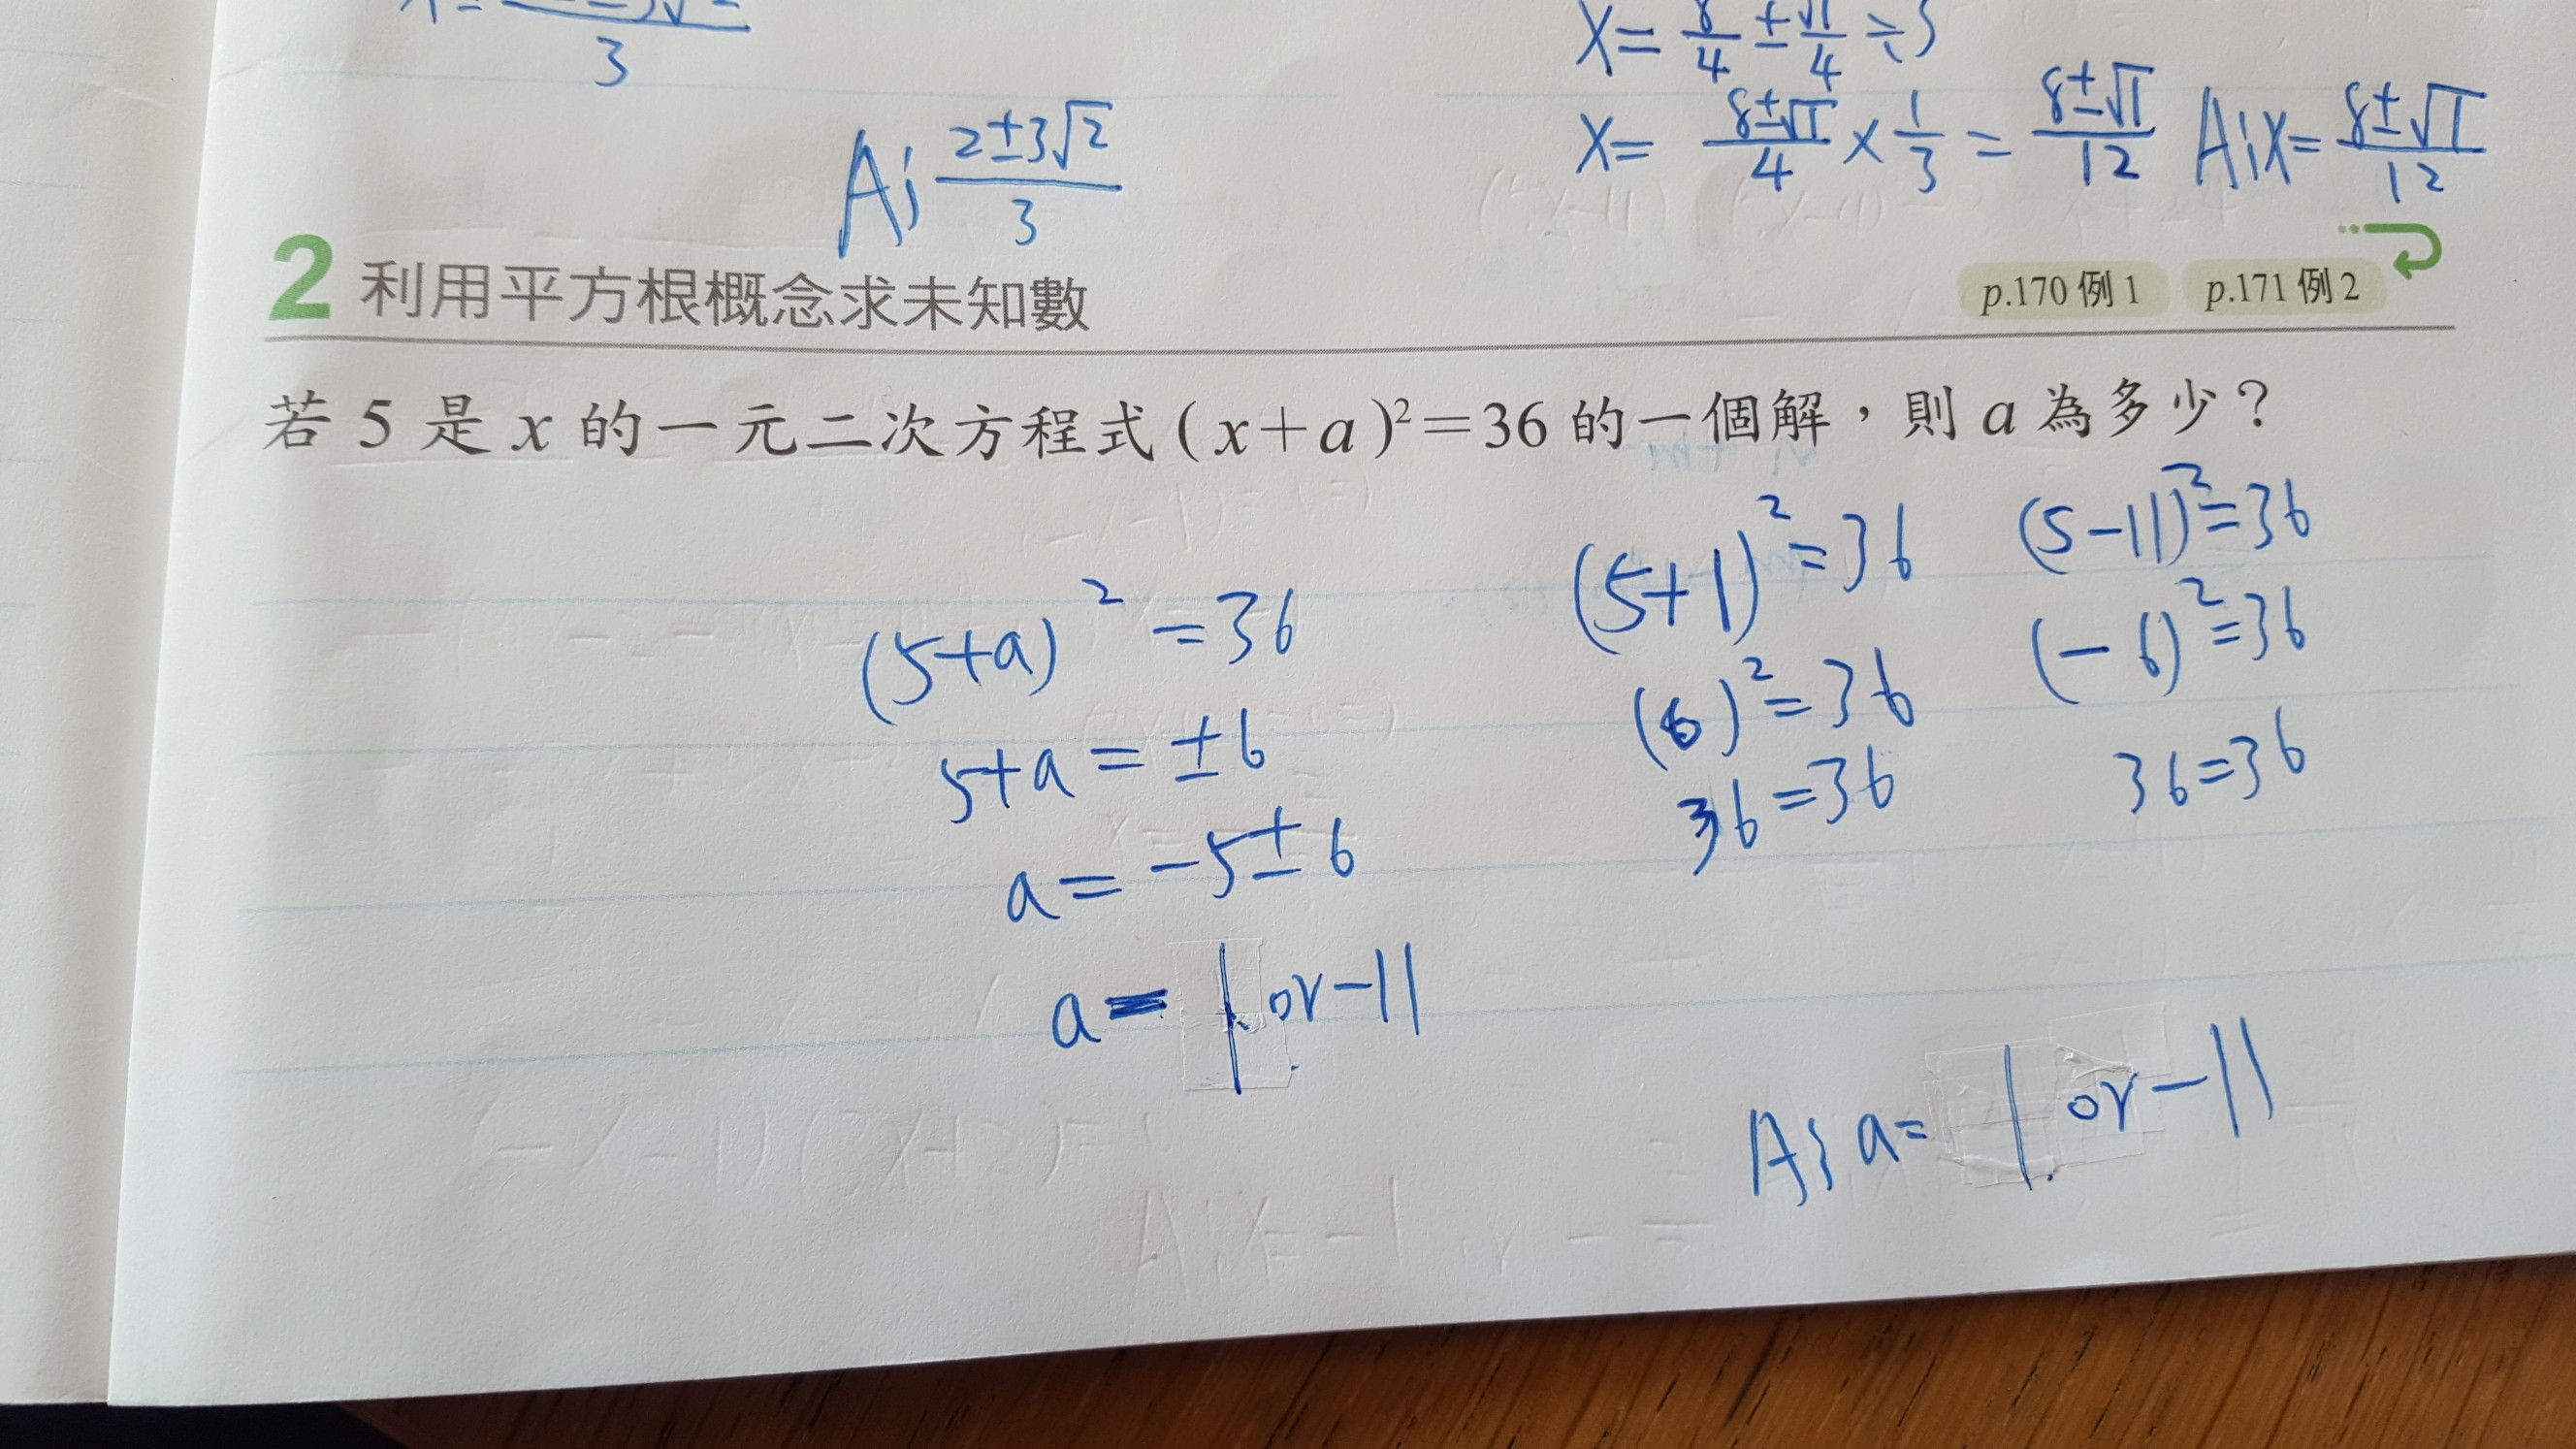 3
A; 2±3√2/3
X= 8/4 ± √1/4 ÷3
X= 8±√1/4 × 1/3 = 8±√1/12 A;X= 8±√1/12
2 利用平方根概念求未知數 p.170 例 1 p.171 例 2
若 5 是 x 的一元二次方程式 ( x+a )²=36 的一個解，則 a 為多少？
(5+a)² =36
5+a = ±6
a= -5±6
a= 1 or -11
(5+1)²=36
(6)²=36
36=36
(5-11)²=36
(-6)²=36
36=36
A; a= 1 or -11